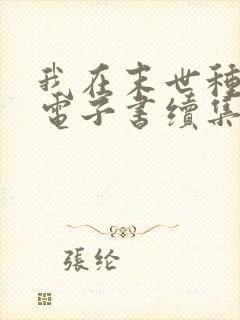 我在末世種
電子書續集
張纶